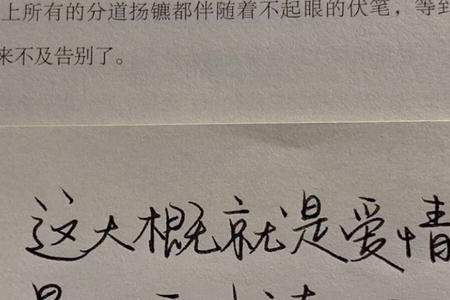 上所有的分道扬镳都伴随着不起眼的伏笔，等到
来不及告别了。
这大概就是爱情